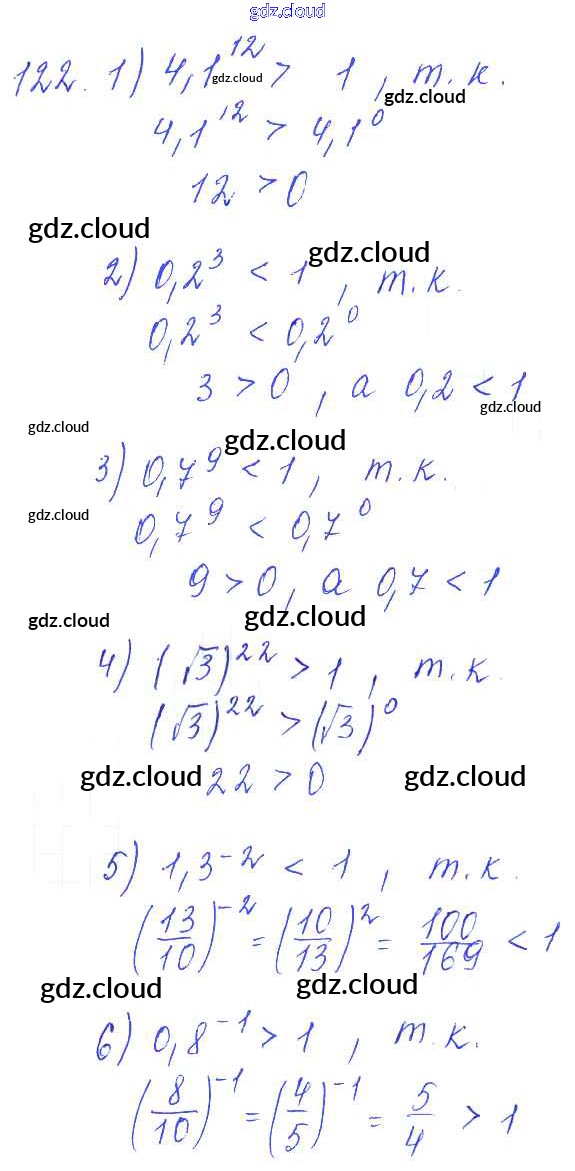 gdz.cloud
122. 1) 4,1¹² > 1, т.к.
gdz.cloud
gdz.cloud
4,1¹² > 4,1⁰
12 > 0
gdz.cloud
gdz.cloud
2) 0,2³ < 1, т.к.
0,2³ < 0,2⁰
3 > 0, а 0,2 < 1
gdz.cloud
gdz.cloud
gdz.cloud
3) 0,7⁹ < 1, т.к.
gdz.cloud
0,7⁹ < 0,7⁰
9 > 0, а 0,7 < 1
gdz.cloud
gdz.cloud
4) (√3)²² > 1, т.к.
(√3)²² > (√3)⁰
gdz.cloud
22 > 0
gdz.cloud
5) 1,3⁻² < 1, т.к.
(13/10)⁻² = (10/13)² = 100/169 < 1
gdz.cloud
gdz.cloud
6) 0,8⁻¹ > 1, т.к.
(8/10)⁻¹ = (4/5)⁻¹ = 5/4 > 1